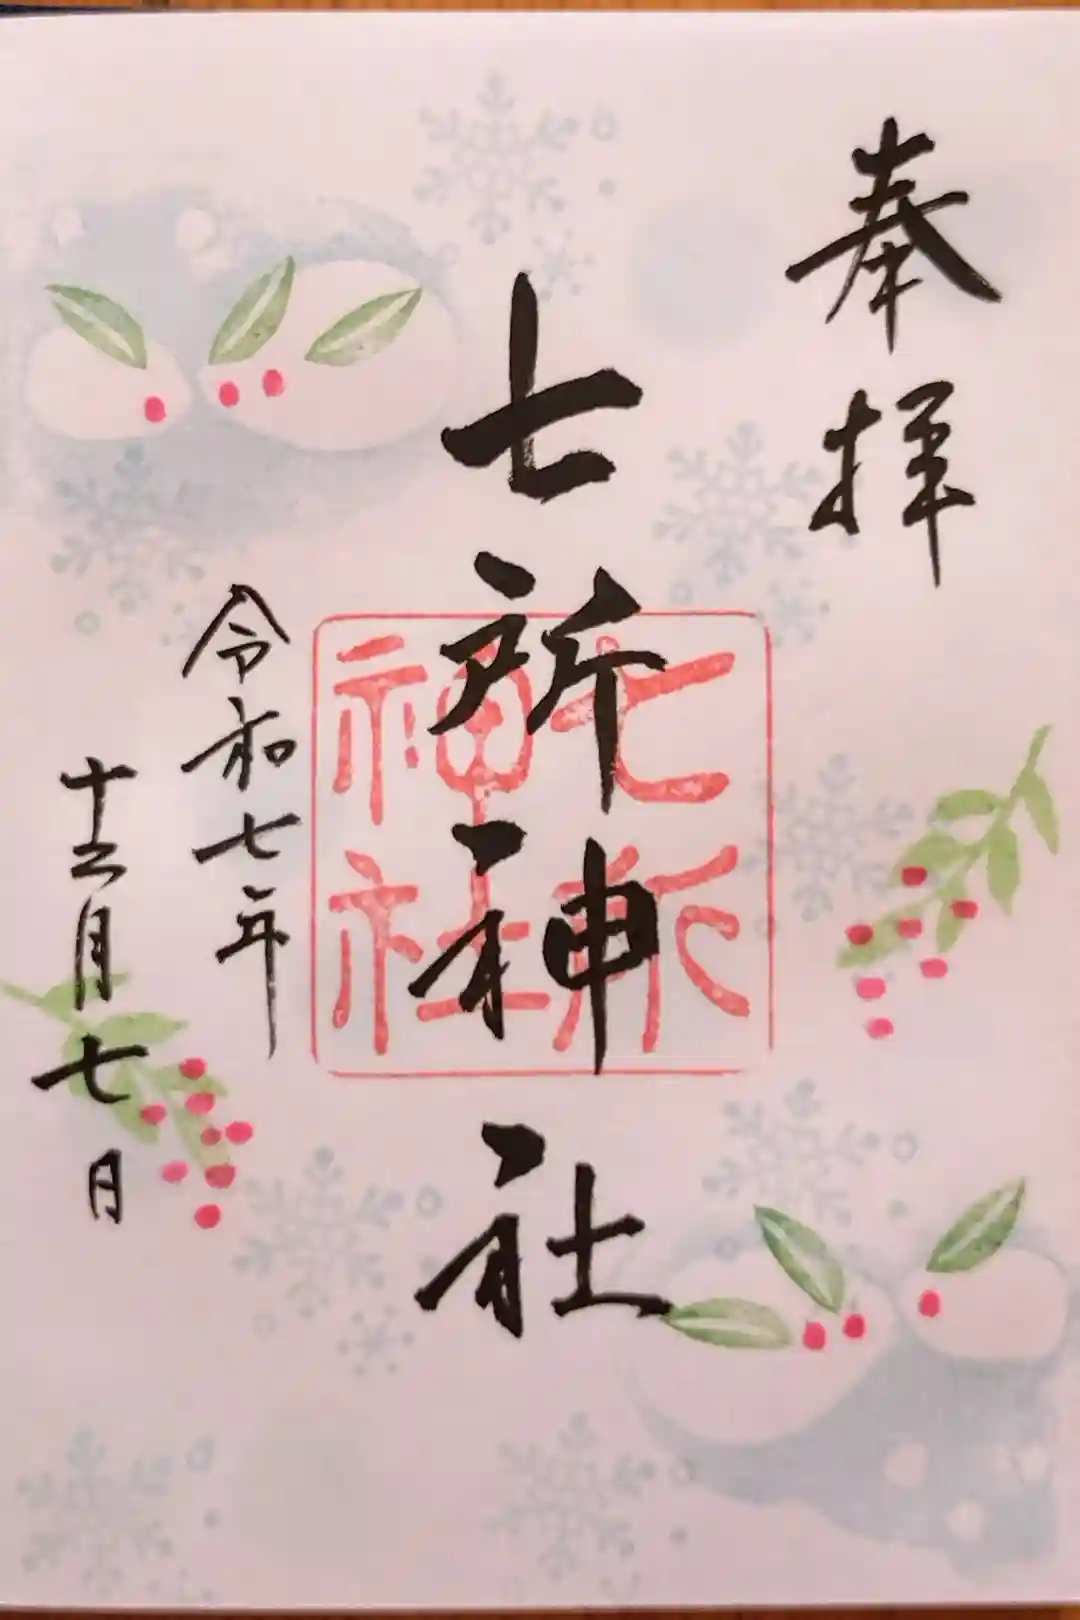 奉拝
七所神社
七所神社
令和七年
十二月七日